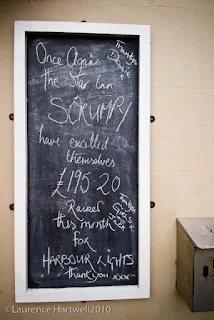 Once Again
the Star Inn
SCRUMPY
have excelled
themselves
£195-20
Raised
this month
for
HARBOUR LIGHTS
thank you xxx
Thankyou
Denise
x
Thankyou
Guys
x
Jack
©Laurence Hartwell2010